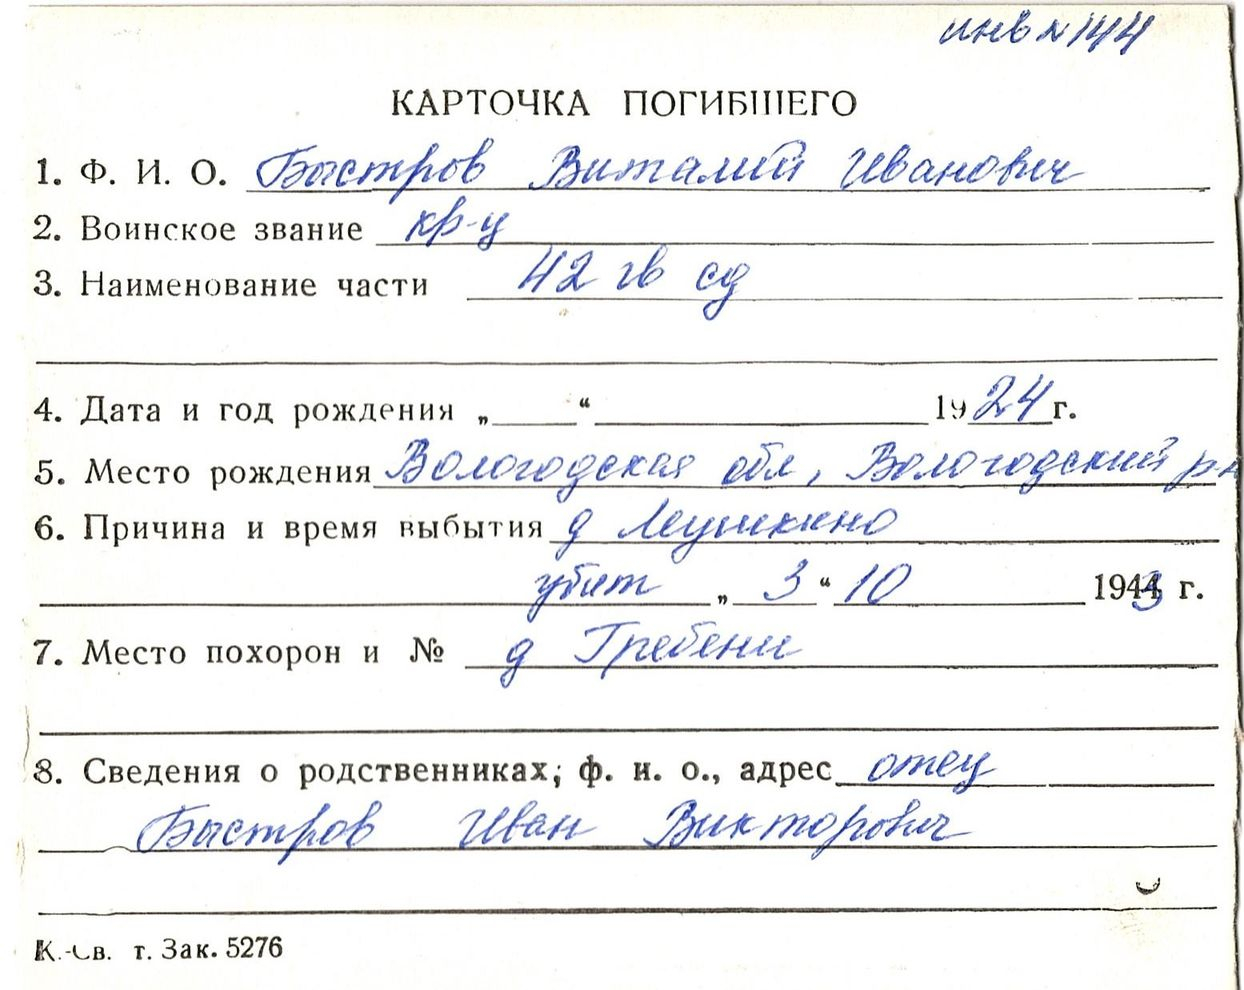 инв № 144
КАРТОЧКА ПОГИБШЕГО
1. Ф. И. О. Быстров Виталий Иванович
2. Воинское звание кр-ц
3. Наименование части 42 гв сд
4. Дата и год рождения „ “ 1924 г.
5. Место рождения Вологодская обл, Вологодский р-н
6. Причина и время выбытия д
убит „ 3 “ 10 1943 г.
7. Место похорон и № д Гребени
8. Сведения о родственниках; ф. и. о., адрес отец
Быстров Иван Викторович
т. Зак. 5276